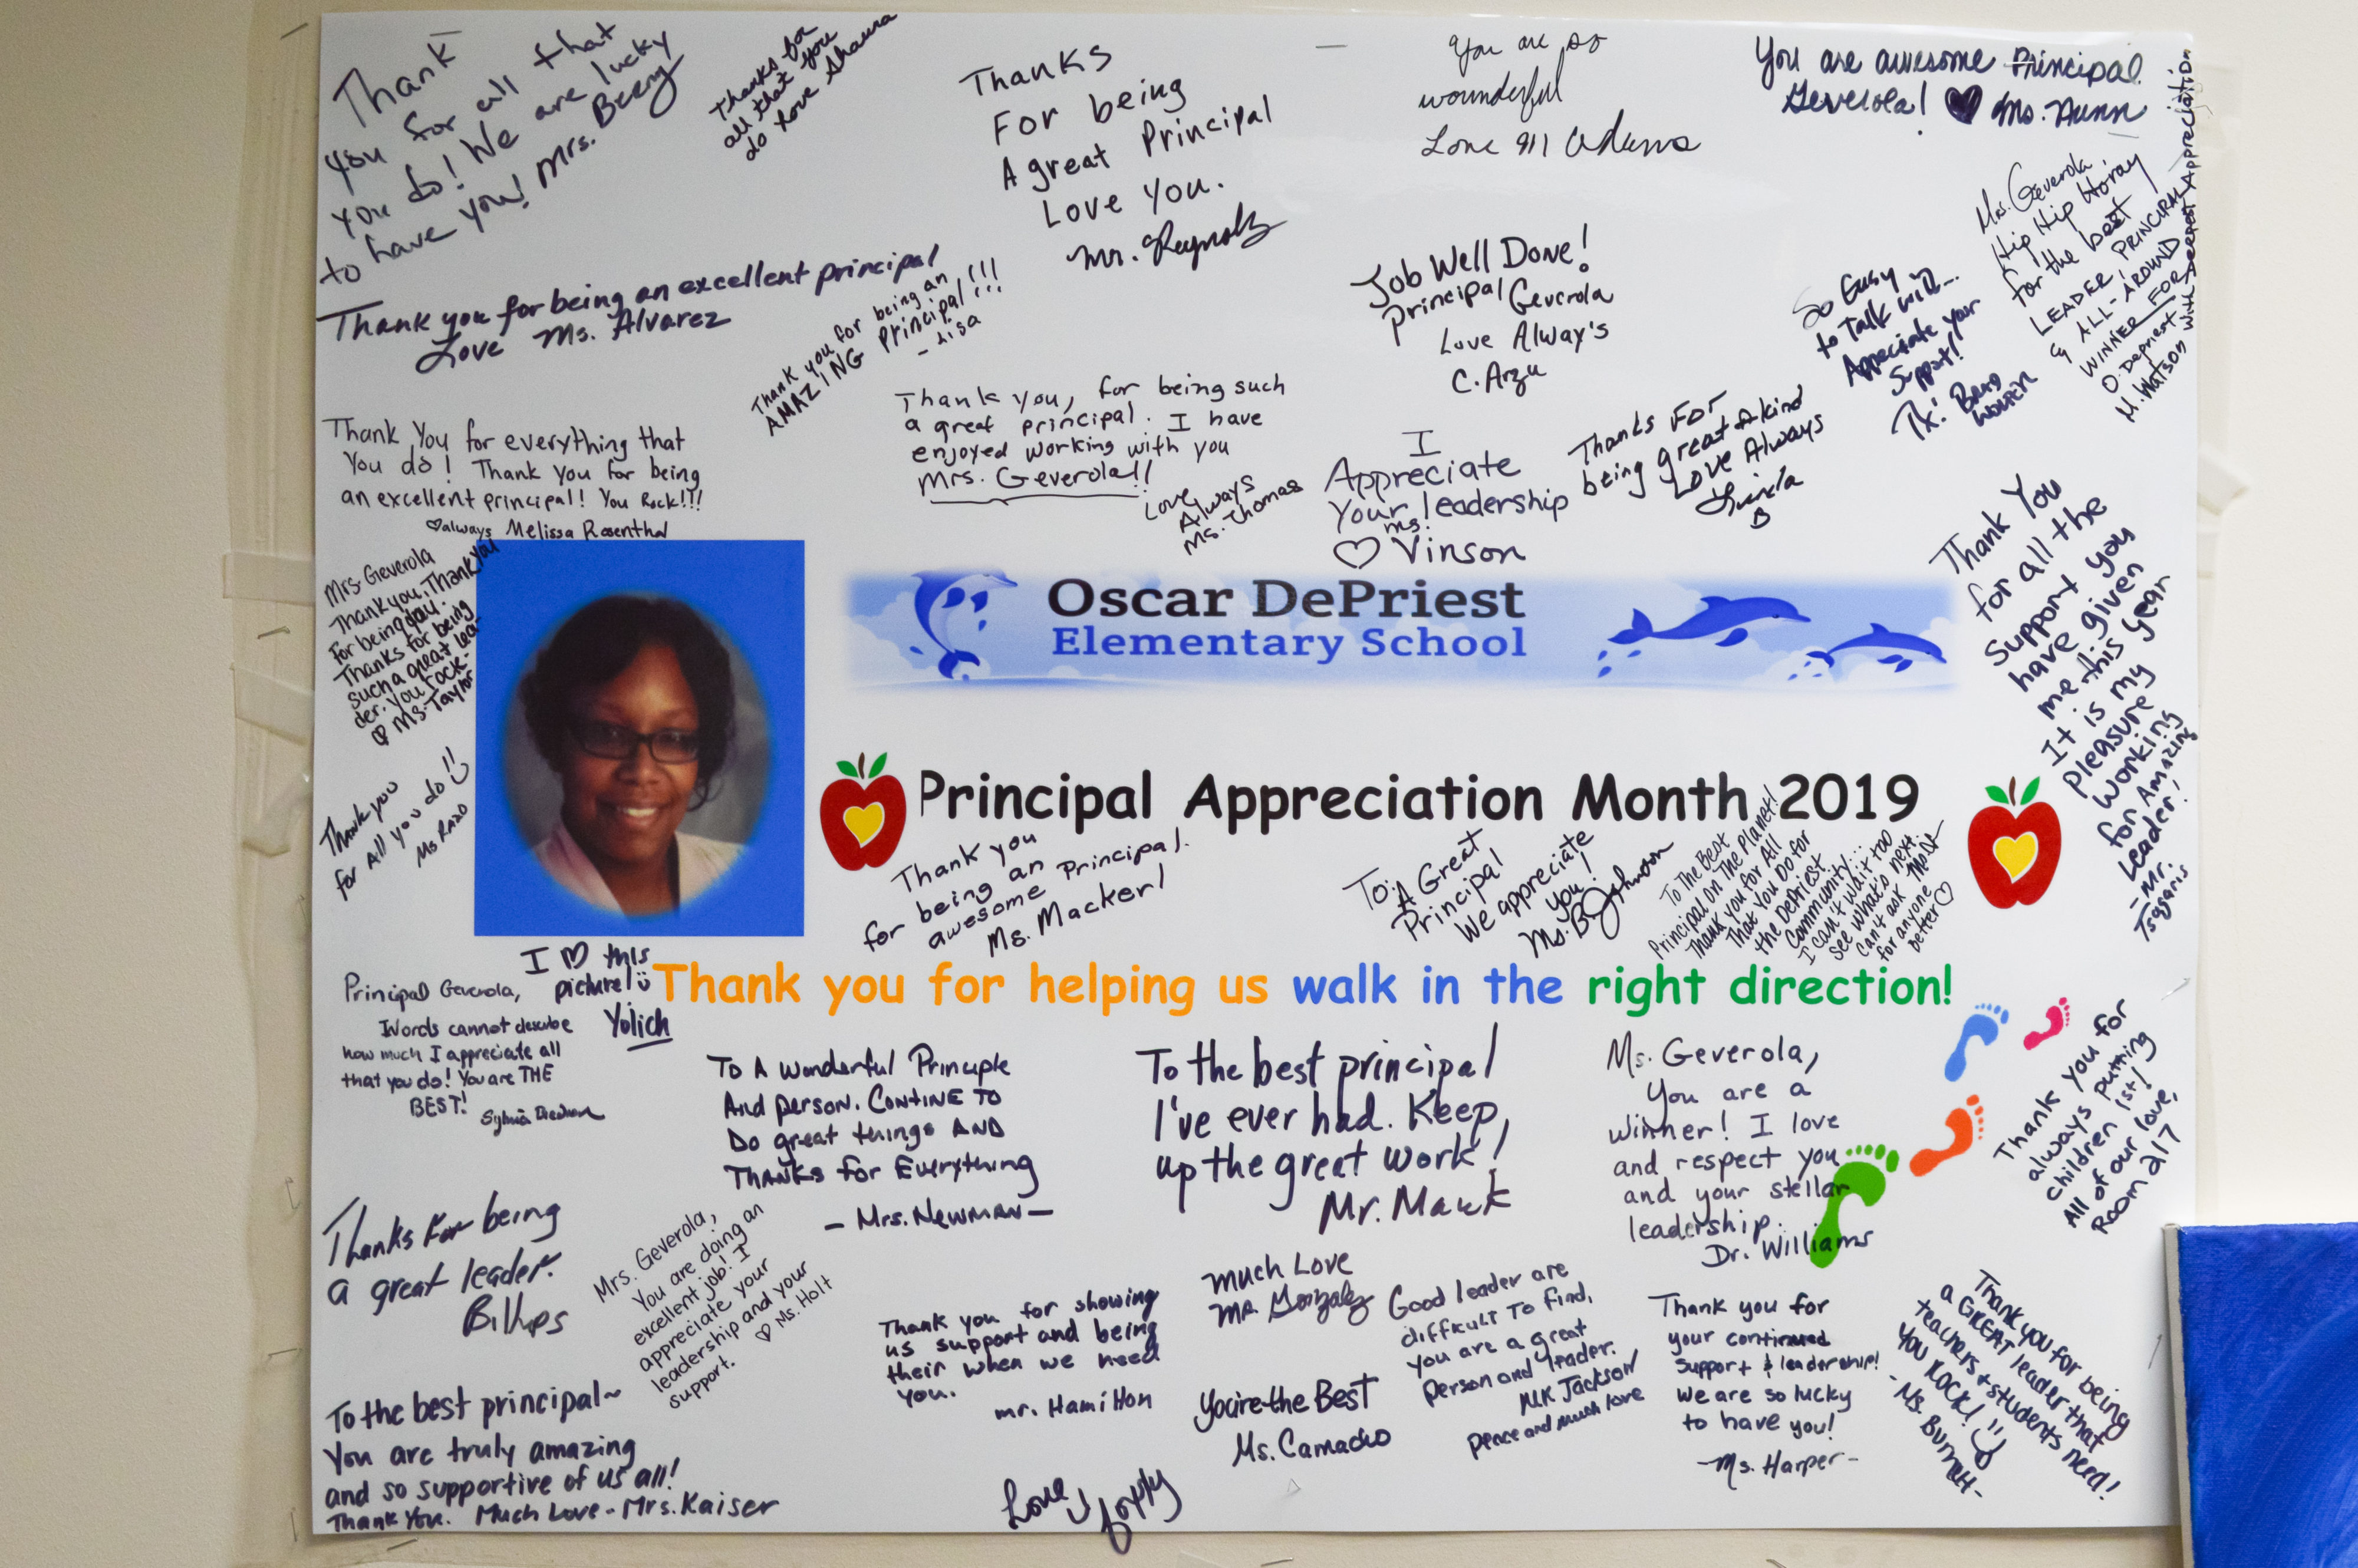 Thank
you for all that
you do! We are lucky
to have you! Mrs. Berry
Thanks for
all that you
do Love Shauna
Thanks
For being
A great Principal
Love you.
Mr. Reynolds
You are so
wounderful
Love 911 Adams
You are awesome Principal
Geverola! Ms. Nunn
Mrs. Geverola,
Hip Hip Horay
for the best
LEADER PRINCIPAL
& ALL-AROUND
WINNER FOR
O. Depriest
With Deepest Appreciation
M. Watson
Thank you for being an excellent principal
Love Ms. Alvarez
Thank you for being an
AMAZING Principal!!!
- Lisa
Job Well Done!
Principal Geverola
Love Alway's
C. Arzu
So Easy
to Talk with...
Appreciate your
Support!
Tx!
Thank You for everything that
You do! Thank you for being
an excellent principal! You Rock!!!
always Melissa Rosenthal
Thank you, for being such
a great principal. I have
enjoyed working with you
Mrs. Geverola!!
Love,
Always
Ms. Thomas
I
Appreciate
Your leadership
Ms.
Vinson
Thanks FOR
being great & kind
Love Always
B
Thank You
for all the
Support you
have given
me this year
It is my
pleasure
working
for Amazing
Leader!
- Mr.
Tsagaris
Mrs. Geverola
Thank you, Thank you
For being you.
Thanks for being
such a great lea-
der. You rock-
Ms. Taylor
Oscar DePriest
Elementary School
Thank you
for All you do!!
Ms Razo
Principal Appreciation Month 2019
Thank you
for being an
awesome Principal.
Ms. Macker!
To: A Great
Principal
We appreciate
you!
Ms. B Johnson
To The Best
Principal On The Planet!
Thank You for All
That You Do for
the DePriest
Community...
I can't wait too
see what's next.
Can't ask
for anyone
better
I this
picture!
Yolich
Thank you for helping us walk in the right direction!
Principal Geverola,
Words cannot describe
how much I appreciate all
that you do! You are THE
BEST!
Sylvia
To A Wonderful Principle
And person. Contine To
Do great things AND
THANKS for Everything
- Mrs. Newman -
To the best principal
I've ever had. Keep
up the great work!
Mr. Mark
Ms. Geverola,
You are a
winner! I love
and respect you
and your stellar
leadership.
Dr. Williams
Thank you for
always putting
children 1st!
All of our love,
Room 217
Thanks for being
a great leader.
Billups
Mrs. Geverola,
You are doing an
excellent job! I
appreciate your
leadership and your
support. Ms. Holt
Thank you for showing
us support and being
their when we need
you.
mr. Hamilton
Much Love
Mr. Gonzalez
Good leader are
difficult To find,
you are a great
person and leader.
MK Jackson
peace and much love
You're the Best
Ms. Camacho
Thank you for
your continued
support & leadership!
We are so lucky
to have you!
- Ms. Harper -
Thank you for being
a GREAT leader that
teachers + students need!
YOU ROCK!
- Ms. Burnett -
To the best principal~
You are truly amazing
and so supportive of us all!
Thank you. Much Love - Mrs. Kaiser
Love